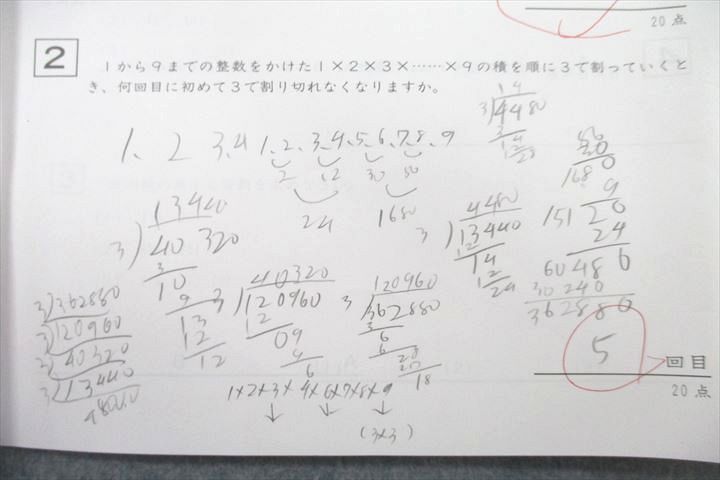 20点
2
1から9までの整数をかけた1×2×3×……×9の積を順に3で割っていくと
き、何回目に初めて3で割り切れなくなりますか。
1、2 3、4 1、2、3、4、5、6、7、8、9
2 12 30 56
24 1680
14
3)4480
3
14
12
28
1680
9
15120
24
60486
30240
362880
13440
3)40320
3
10
9
13
12
12
40320
3)120960
12
09
9
6
120960
3)362880
3
6
6
28
18
4480
3)13440
12
14
12
24
3)362880
3)120960
3)40320
3)13440
1×2×3×4×6×7×8×9
(3×3)
5
回目
20点